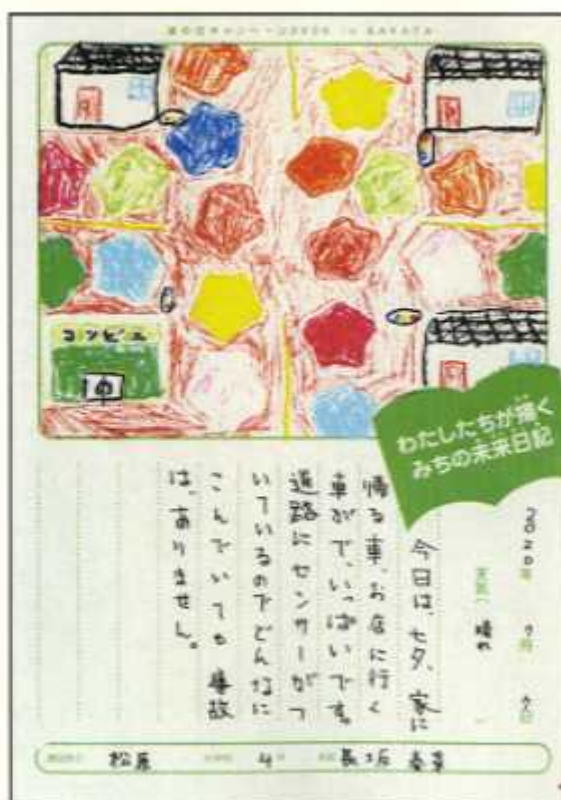 コンビニ
わたしたちが描く
みちの未来日記
2020年 7月 7日
天気( 晴れ )
今日は、七夕、家に
帰る車、お店に行く
車がで、いっぱいです。
道路にセンサーがつ
いているのでどんなに
こんでいても 事故
は、ありません。
松原 4年 長坂